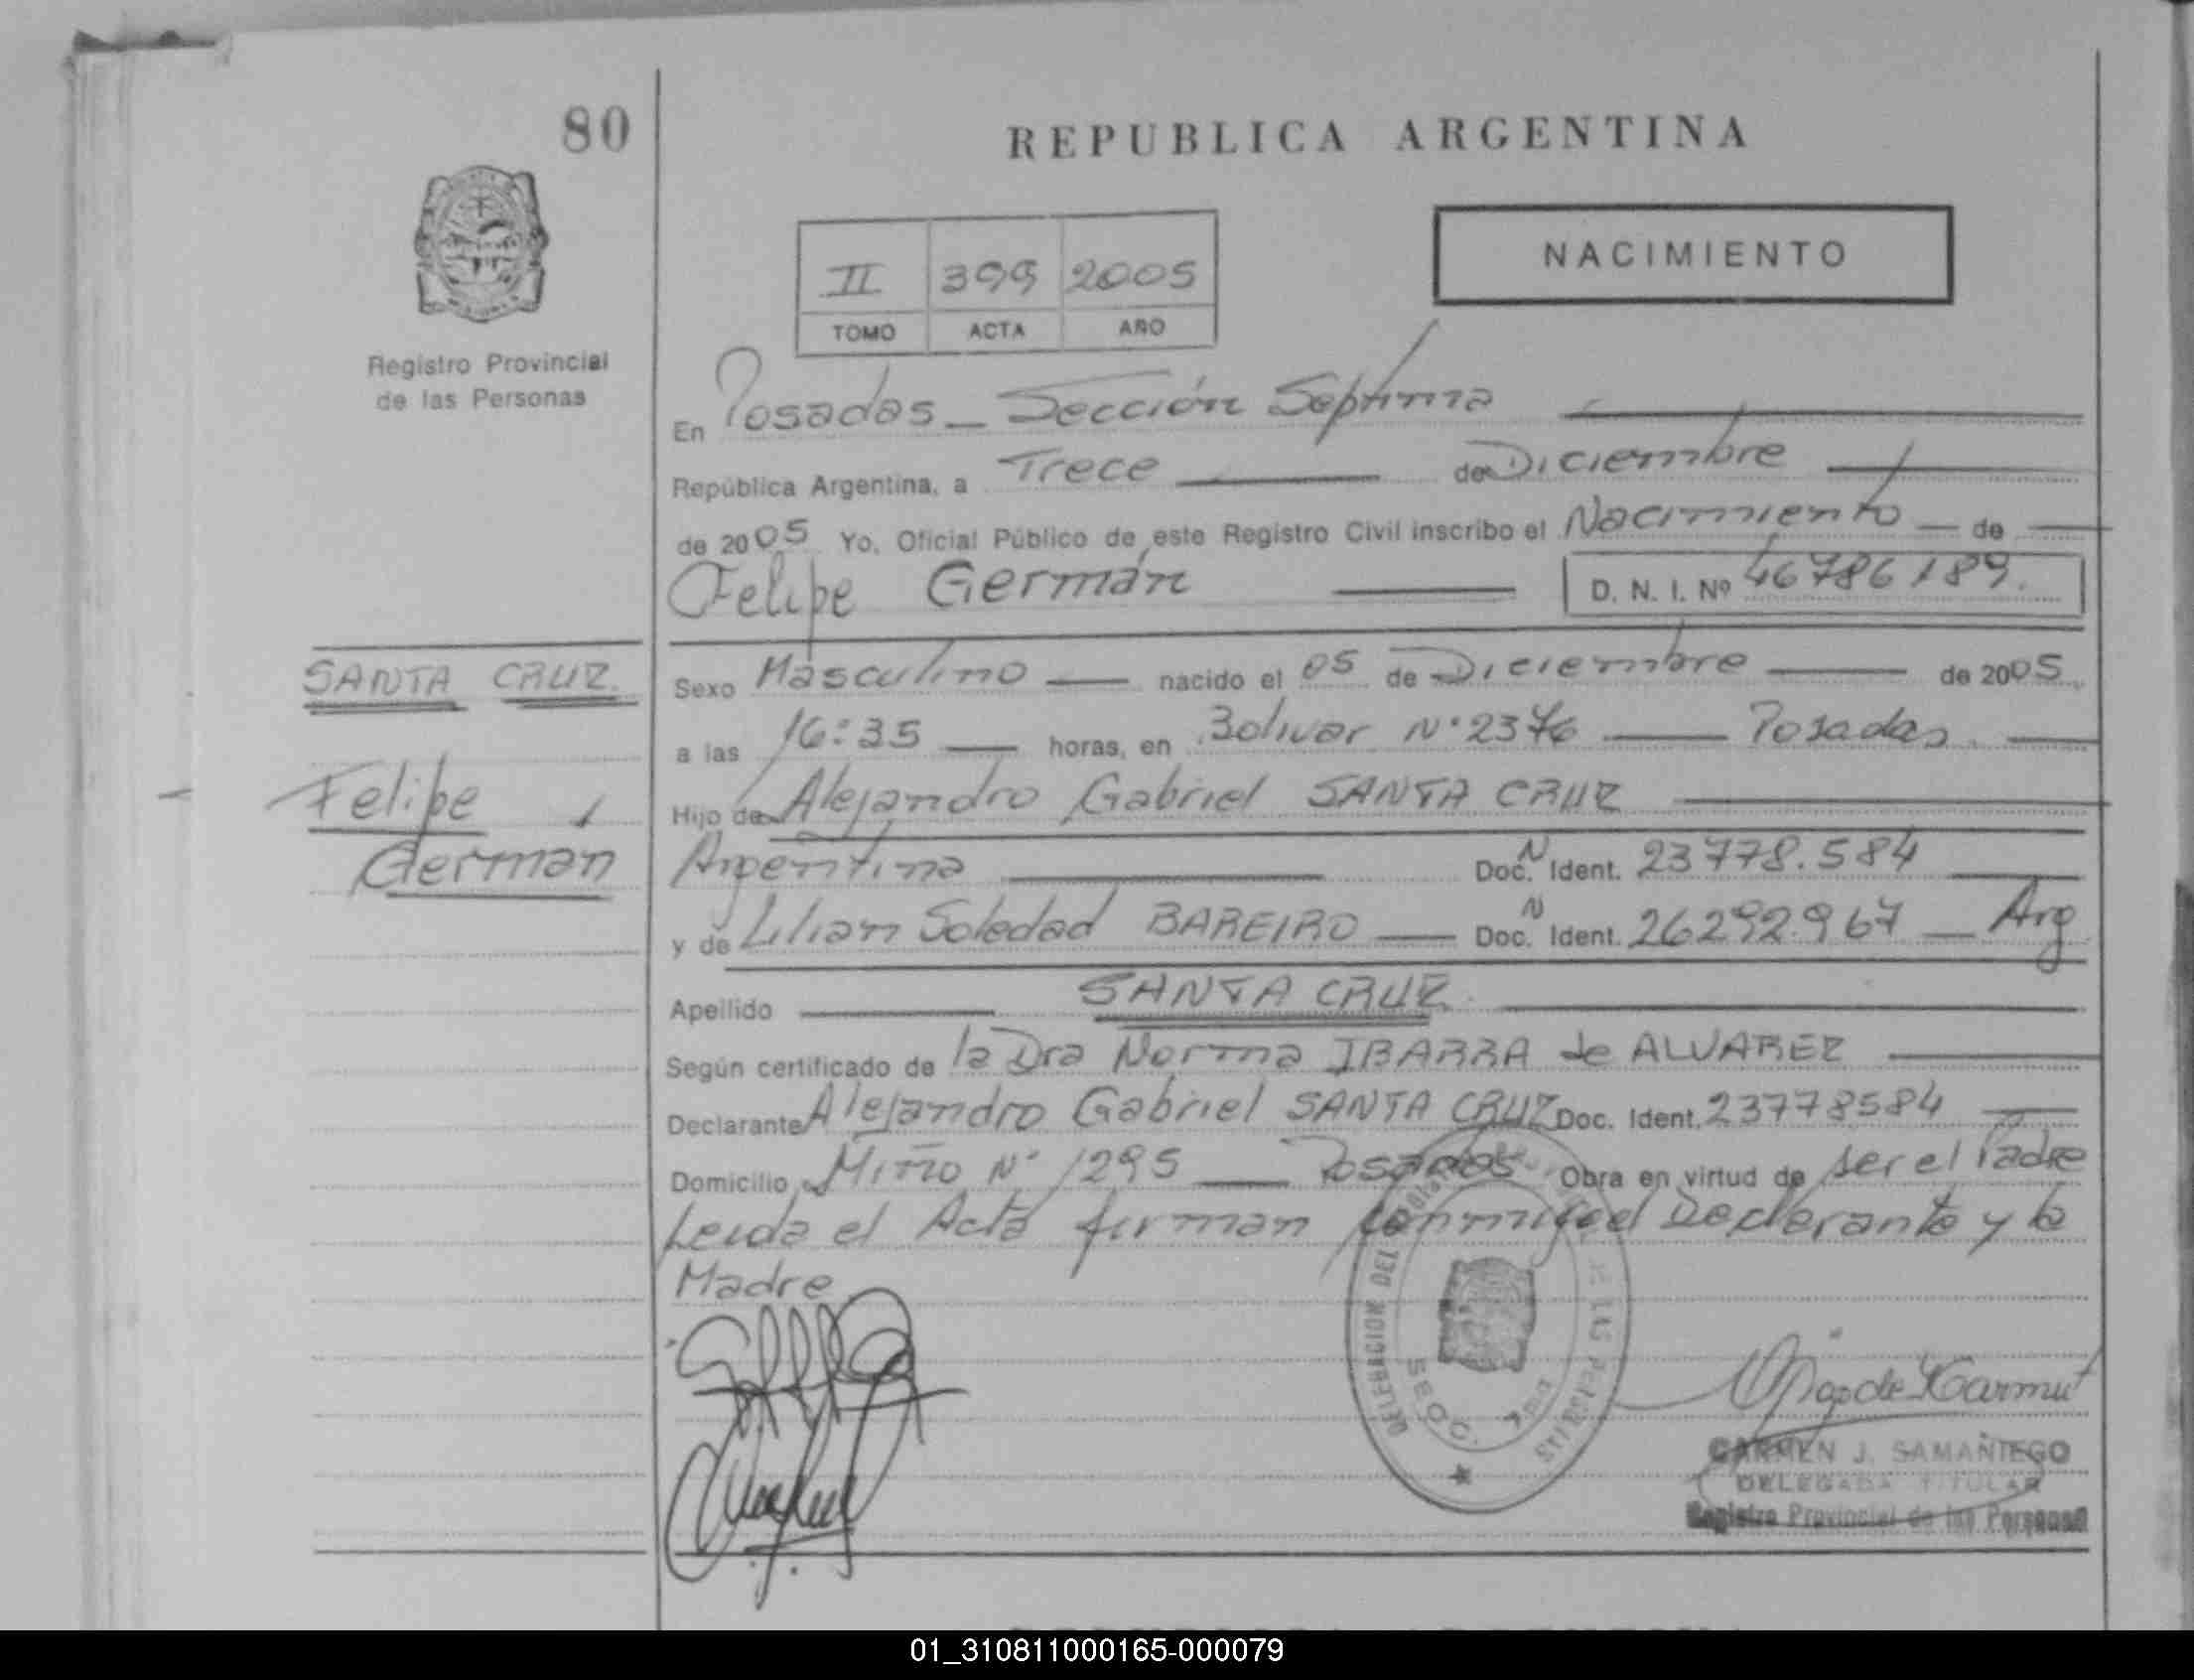 80
REPUBLICA ARGENTINA
NACIMIENTO
II 399 2005
TOMO ACTA AÑO
Registro Provincial
de las Personas
En Posadas - Sección Séptima
República Argentina, a Trece de Diciembre
de 2005 Yo, Oficial Público de este Registro Civil inscribo el Nacimiento de
Felipe Germán D. N. I. Nº 46786189.
SANTA CRUZ
Sexo Masculino nacido el 05 de Diciembre de 2005
a las 16:35 horas, en Bolivar Nº 2376 Posadas.
Felipe
Hijo de Alejandro Gabriel SANTA CRUZ
German
Argentina Doc. N Ident. 23778.584
y de Lilian Soledad BAREIRO Doc. N Ident. 26292.967 Arg
Apellido SANTA CRUZ
Según certificado de la Dra Norma IBARRA de ALVAREZ
Declarante Alejandro Gabriel SANTA CRUZ Doc. Ident. 23778584
Domicilio Miño Nº 1295 Posadas Obra en virtud de ser el Padre
Leida el Acta firman conmigo el Declarante y la
Madre
CARMEN J. SAMAÑIEGO
DELEGADA TITULAR
Registro Provincial de las Personas
01_310811000165-000079